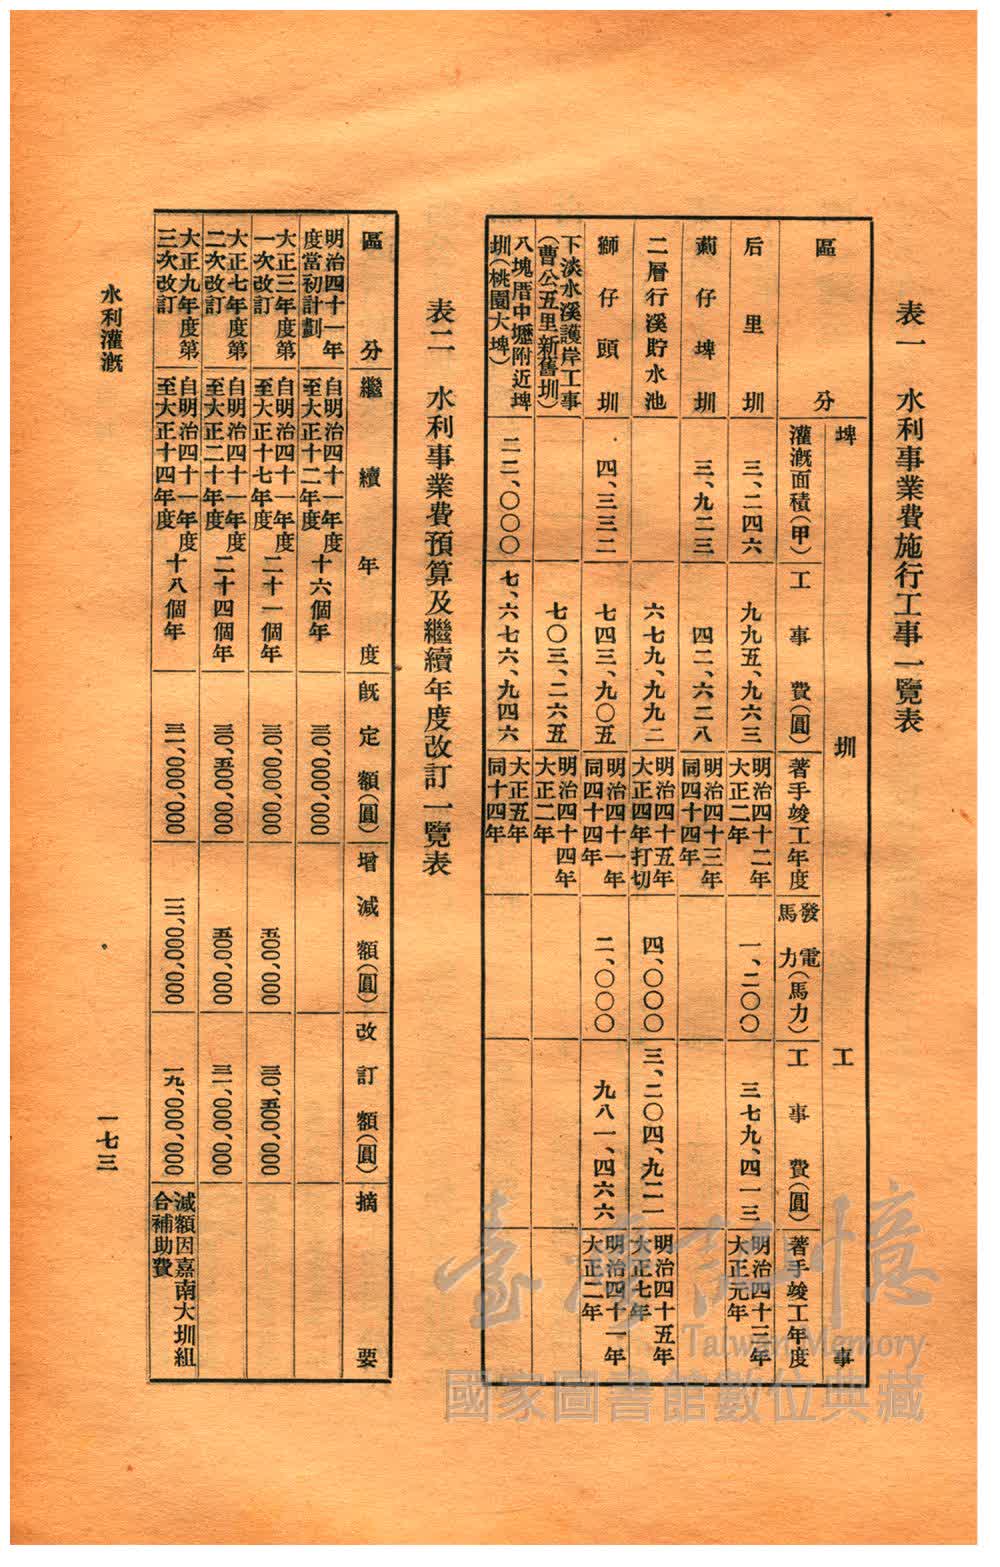 表一　水利事業費施行工事一覽表
區分
埤圳工事
灌漑面積(甲)
工事費(圓)
著手竣工年度
發電馬力(馬力)
工事費(圓)
著手竣工年度
后里圳
三、二四六
九九五、九六三
明治四十二年
大正二年
一、二〇〇
三七九、四一三
明治四十三年
大正元年
薊仔埤圳
三、九二三
四二、六二八
明治四十三年
同四十四年
二層行溪貯水池
六七九、九九二
明治四十五年
大正四年打切
四、〇〇〇
三、二〇四、九二一
明治四十五年
大正七年
獅仔頭圳
四、三三二
七四三、九〇五
明治四十一年
同四十四年
二、〇〇〇
九八一、四六六
明治四十一年
大正二年
下淡水溪護岸工事
(曹公五里新舊圳)
七〇三、二六五
明治四十四年
大正二年
八塊厝中壢附近埤
圳(桃園大埤)
二二、〇〇〇
七、六七六、九四六
大正五年
同十四年
表二　水利事業費預算及繼續年度改訂一覽表
區分
繼續年度
旣定額(圓)
增減額(圓)
改訂額(圓)
摘要
明治四十一年
度當初計劃
自明治四十一年度
至大正十二年度
十六個年
三〇、〇〇〇、〇〇〇
大正三年度第
一次改訂
自明治四十一年度
至大正十七年度
二十一個年
三〇、〇〇〇、〇〇〇
五〇〇、〇〇〇
三〇、五〇〇、〇〇〇
大正七年度第
二次改訂
自明治四十一年度
至大正二十年度
二十四個年
三〇、五〇〇、〇〇〇
五〇〇、〇〇〇
三一、〇〇〇、〇〇〇
大正九年度第
三次改訂
自明治四十一年度
至大正十四年度
十八個年
三一、〇〇〇、〇〇〇
一二、〇〇〇、〇〇〇
一九、〇〇〇、〇〇〇
減額因嘉南大圳組
合補助費
水利灌漑
一七三
臺灣記憶
Taiwan Memory
國家圖書館數位典藏